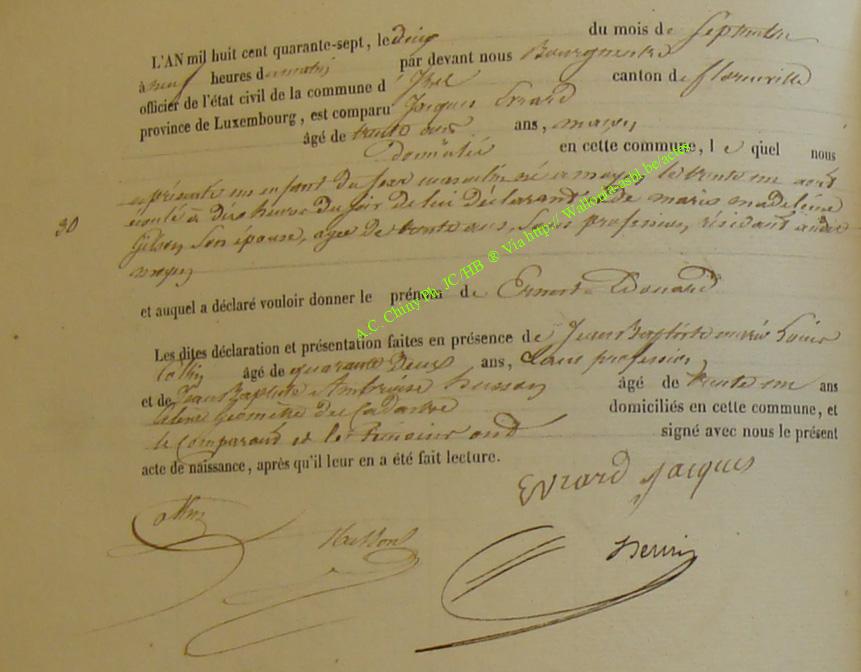 L'AN mil huit cent quarante-sept, le deux du mois de Septembre
à neuf heures du matin par devant nous Bourgmestre
officier de l'état civil de la commune d' Izel canton de florenville
province de Luxembourg, est comparu Jacques Evrard
âgé de trente ans ans, maçon
Domicilié en cette commune, l e quel nous
30
a présenté un enfant du sexe masculin né a moyen le trente un aout
écoulé à dix heures du soir de lui déclarant et de marie madeleine
Gilson, Son épouse, agée de trente ans, Sans profession, résidant audit
moyen
et auquel a déclaré vouloir donner le prénom de Ernest Edouard
Les dites déclaration et présentation faites en présence de Jean Baptiste marie Louis
Collin âgé de quarante Deux ans, Sans profession
et de Jean Baptiste Ambroise husson âgé de trente un ans
géomètre du Cadastre domiciliés en cette commune, et
le Comparant et les témoins ont signé avec nous le présent
acte de naissance, après qu'il leur en a été fait lecture.
Evrard Jacques
Collin
Husson
A.C. Chiny Ph. JC/HB ® Via http:// Wallonia-asbl.be/actes